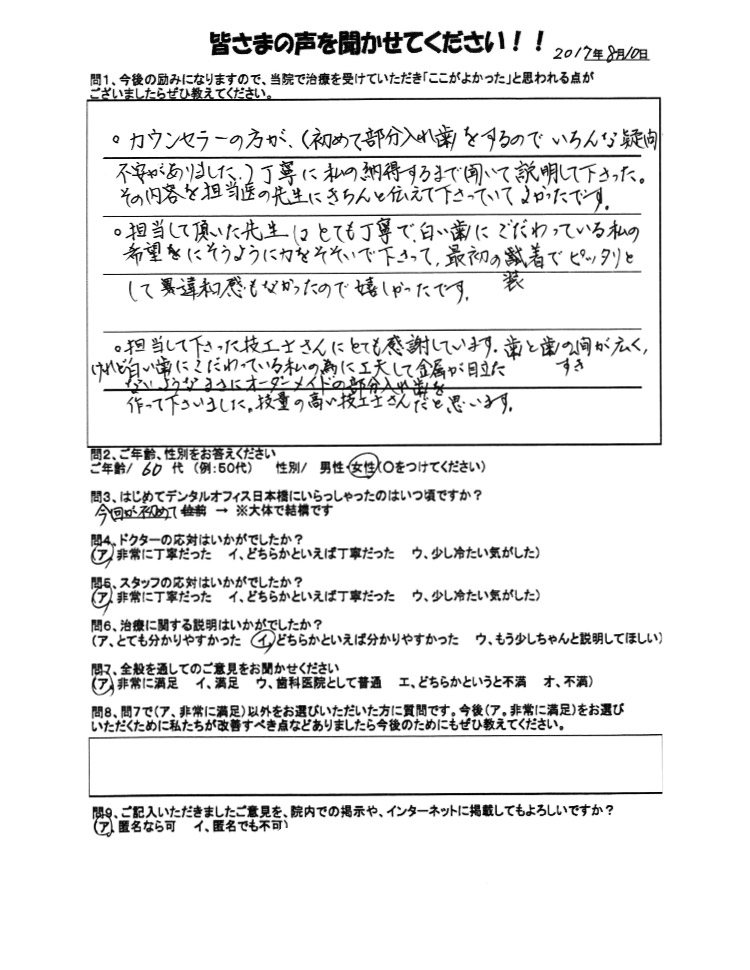 皆さまの声を聞かせてください！！
2017年8月10日
問1、今後の励みになりますので、当院で治療を受けていただき「ここがよかった」と思われる点が
ございましたらぜひ教えてください。
○カウンセラーの方が、(初めて部分入れ歯をするのでいろんな疑問
不安がありました。)丁寧に私の納得するまで聞いて説明して下さった。
その内容を担当医の先生にきちんと伝えて下さっていてよかったです。
○担当して頂いた先生はとても丁寧で、白い歯にこだわっている私の
希望をにそうように力をそそいで下さって、最初の試着でピッタリと
装
して異違和感もなかったので嬉しかったです。
○担当して下さった技工士さんにとても感謝しています。歯と歯の間が広く、
けれど白い歯にこだわっている私の為に工夫して金属が目立た
すき
ないようなまさにオーダーメイドの部分入れ歯を
作って下さいました。技量の高い技工士さんだと思います。
問2、ご年齢、性別をお答えください
ご年齢/ 60 代 (例:50代) 性別/ 男性・女性(○をつけてください)
問3、はじめてデンタルオフィス日本橋にいらっしゃったのはいつ頃ですか？
今回が初めて → ※大体で結構です
問4、ドクターの応対はいかがでしたか？
(ア、非常に丁寧だった イ、どちらかといえば丁寧だった ウ、少し冷たい気がした)
問5、スタッフの応対はいかがでしたか？
(ア、非常に丁寧だった イ、どちらかといえば丁寧だった ウ、少し冷たい気がした)
問6、治療に関する説明はいかがでしたか？
(ア、とても分かりやすかった イ、どちらかといえば分かりやすかった ウ、もう少しちゃんと説明してほしい)
問7、全般を通してのご意見をお聞かせください
(ア、非常に満足 イ、満足 ウ、歯科医院として普通 エ、どちらかというと不満 オ、不満)
問8、問7で(ア、非常に満足)以外をお選びいただいた方に質問です。今後(ア。非常に満足)をお選び
いただくために私たちが改善すべき点などありましたら今後のためにもぜひ教えてください。
問9、ご記入いただきましたご意見を、院内での掲示や、インターネットに掲載してもよろしいですか？
(ア、匿名なら可 イ、匿名でも不可)